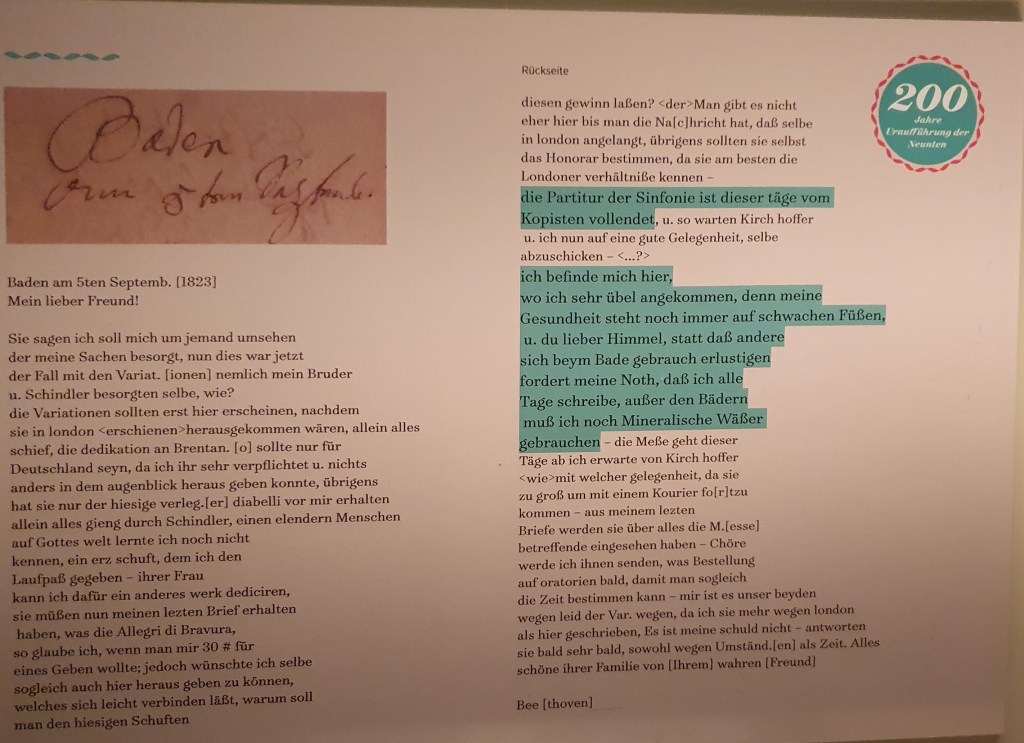 Baden
am 5ten Septemb.
Baden am 5ten Septemb. [1823]
Mein lieber Freund!
Sie sagen ich soll mich um jemand umsehen
der meine Sachen besorgt, nun dies war jetzt
der Fall mit den Variat. [ionen] nemlich mein Bruder
u. Schindler besorgten selbe, wie?
die Variationen sollten erst hier erscheinen, nachdem
sie in london <erschienen>herausgekommen wären, allein alles
schief, die dedikation an Brentan. [o] sollte nur für
Deutschland seyn, da ich ihr sehr verpflichtet u. nichts
anders in dem augenblick heraus geben konnte, übrigens
hat sie nur der hiesige verleg.[er] diabelli vor mir erhalten
allein alles gieng durch Schindler, einen elendern Menschen
auf Gottes welt lernte ich noch nicht
kennen, ein erz schuft, dem ich den
Laufpaß gegeben – ihrer Frau
kann ich dafür ein anderes werk dediciren,
sie müßen nun meinen lezten Brief erhalten
haben, was die Allegri di Bravura,
so glaube ich, wenn man mir 30 # für
eines Geben wollte; jedoch wünschte ich selbe
sogleich auch hier heraus geben zu können,
welches sich leicht verbinden läßt, warum soll
man den hiesigen Schuften
Rückseite
diesen gewinn laßen? <der>Man gibt es nicht
eher hier bis man die Na[c]hricht hat, daß selbe
in london angelangt, übrigens sollten sie selbst
das Honorar bestimmen, da sie am besten die
Londoner verhältniße kennen –
die Partitur der Sinfonie ist dieser täge vom
Kopisten vollendet, u. so warten Kirch hoffer
u. ich nun auf eine gute Gelegenheit, selbe
abzuschicken – <...?>
ich befinde mich hier,
wo ich sehr übel angekommen, denn meine
Gesundheit steht noch immer auf schwachen Füßen,
u. du lieber Himmel, statt daß andere
sich beym Bade gebrauch erlustigen
fordert meine Noth, daß ich alle
Tage schreibe, außer den Bädern
muß ich noch Mineralische Wäßer
gebrauchen – die Meße geht dieser
Täge ab ich erwarte von Kirch hoffer
<wie>mit welcher gelegenheit, da sie
zu groß um mit einem Kourier fo[r]tzu
kommen – aus meinem lezten
Briefe werden sie über alles die M.[esse]
betreffende eingesehen haben – Chöre
werde ich ihnen senden, was Bestellung
auf oratorien bald, damit man sogleich
die Zeit bestimmen kann – mir ist es unser beyden
wegen leid der Var. wegen, da ich sie mehr wegen london
als hier geschrieben, Es ist meine schuld nicht – antworten
sie bald sehr bald, sowohl wegen Umständ.[en] als Zeit. Alles
schöne ihrer Familie von [Ihrem] wahren [Freund]
Bee [thoven]
200
Jahre
Uraufführung der
Neunten